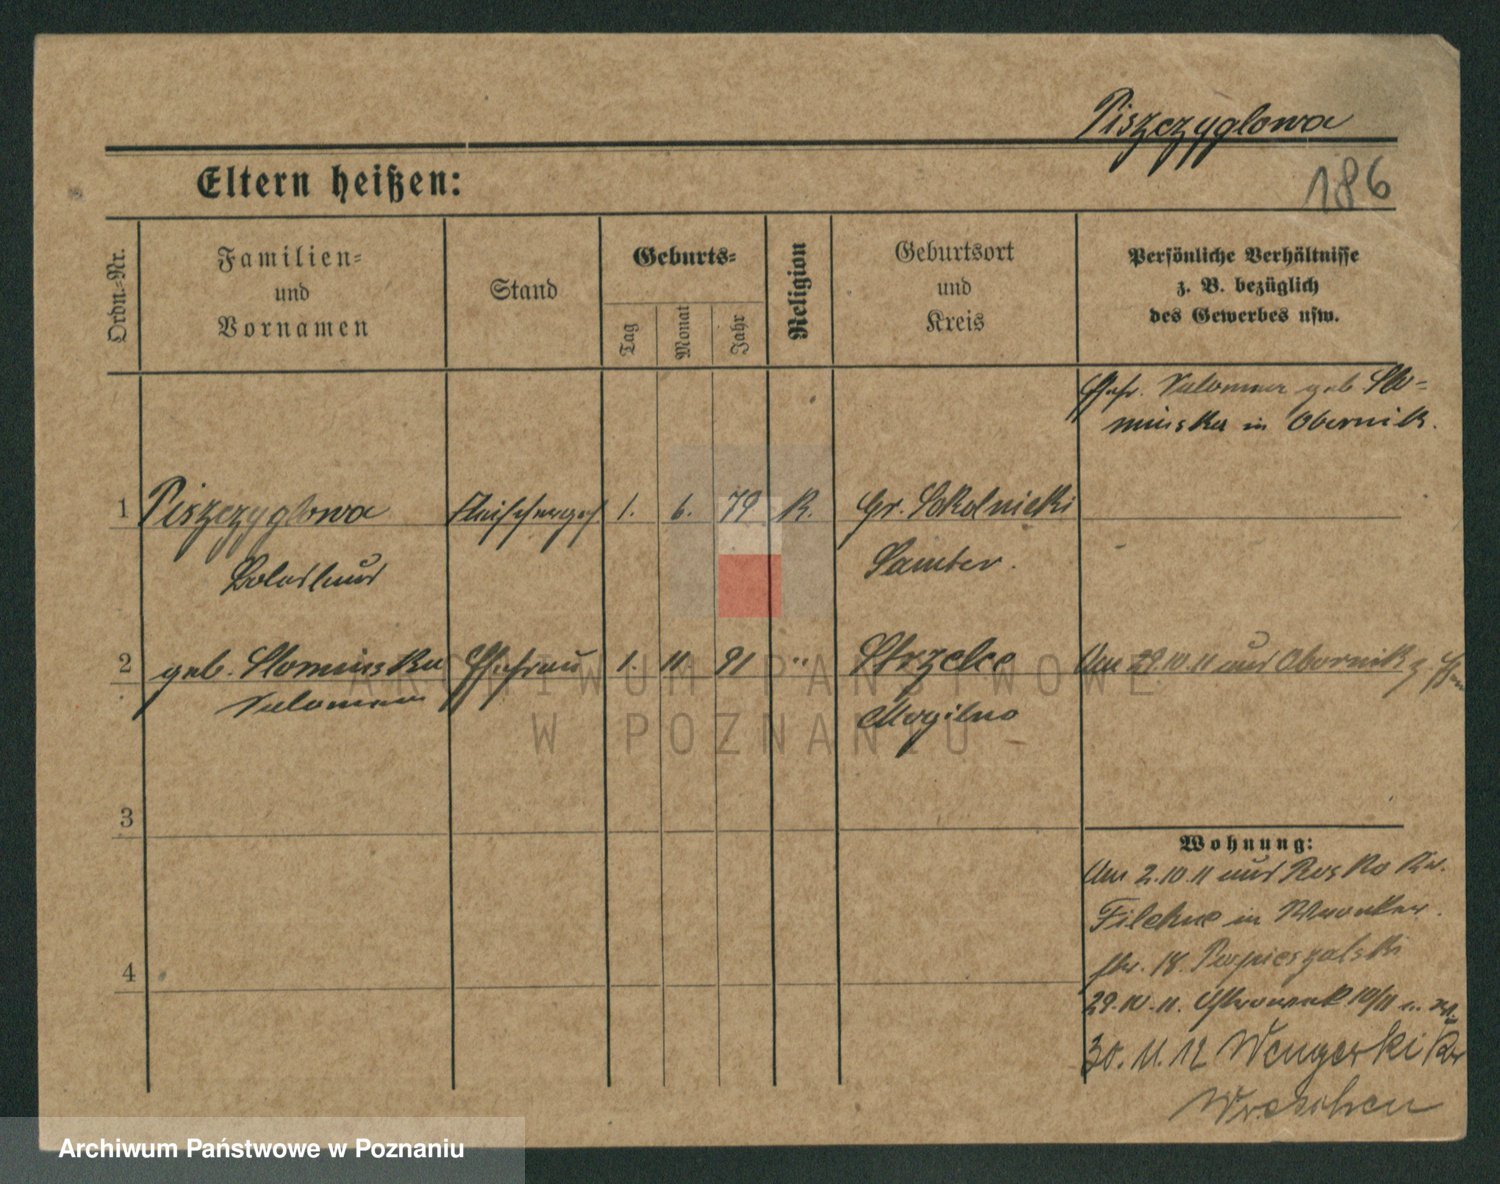 Piszczyglowa
186
Eltern heißen:
Ordn.-Nr.
Familien-
und
Vornamen
Stand
Geburts-
Tag
Monat
Jahr
Religion
Geburtsort
und
Kreis
Persönliche Verhältnisse
z. B. bezüglich
des Gewerbes usw.
Ehefr. Salomea geb. Slo-
minska in Obornik.
1 Piszczyglowa 1. 6. 79 K. Gr. Sokolniki
Boleslaus Samter.
2 geb. Slominska Ehefrau 1. 11. 91 " Strzelce Am 29.10.11 aus Obornik z.
Salomea Mogilno
3
4
Wohnung:
Am 2.10.11 aus Rosko Kr.
Filehne in
str. 18.
29.10.11. 10/11
30.11.12 Wengerski Kr
Wreschen
ARCHIWUM PAŃSTWOWE
W POZNANIU
Archiwum Państwowe w Poznaniu